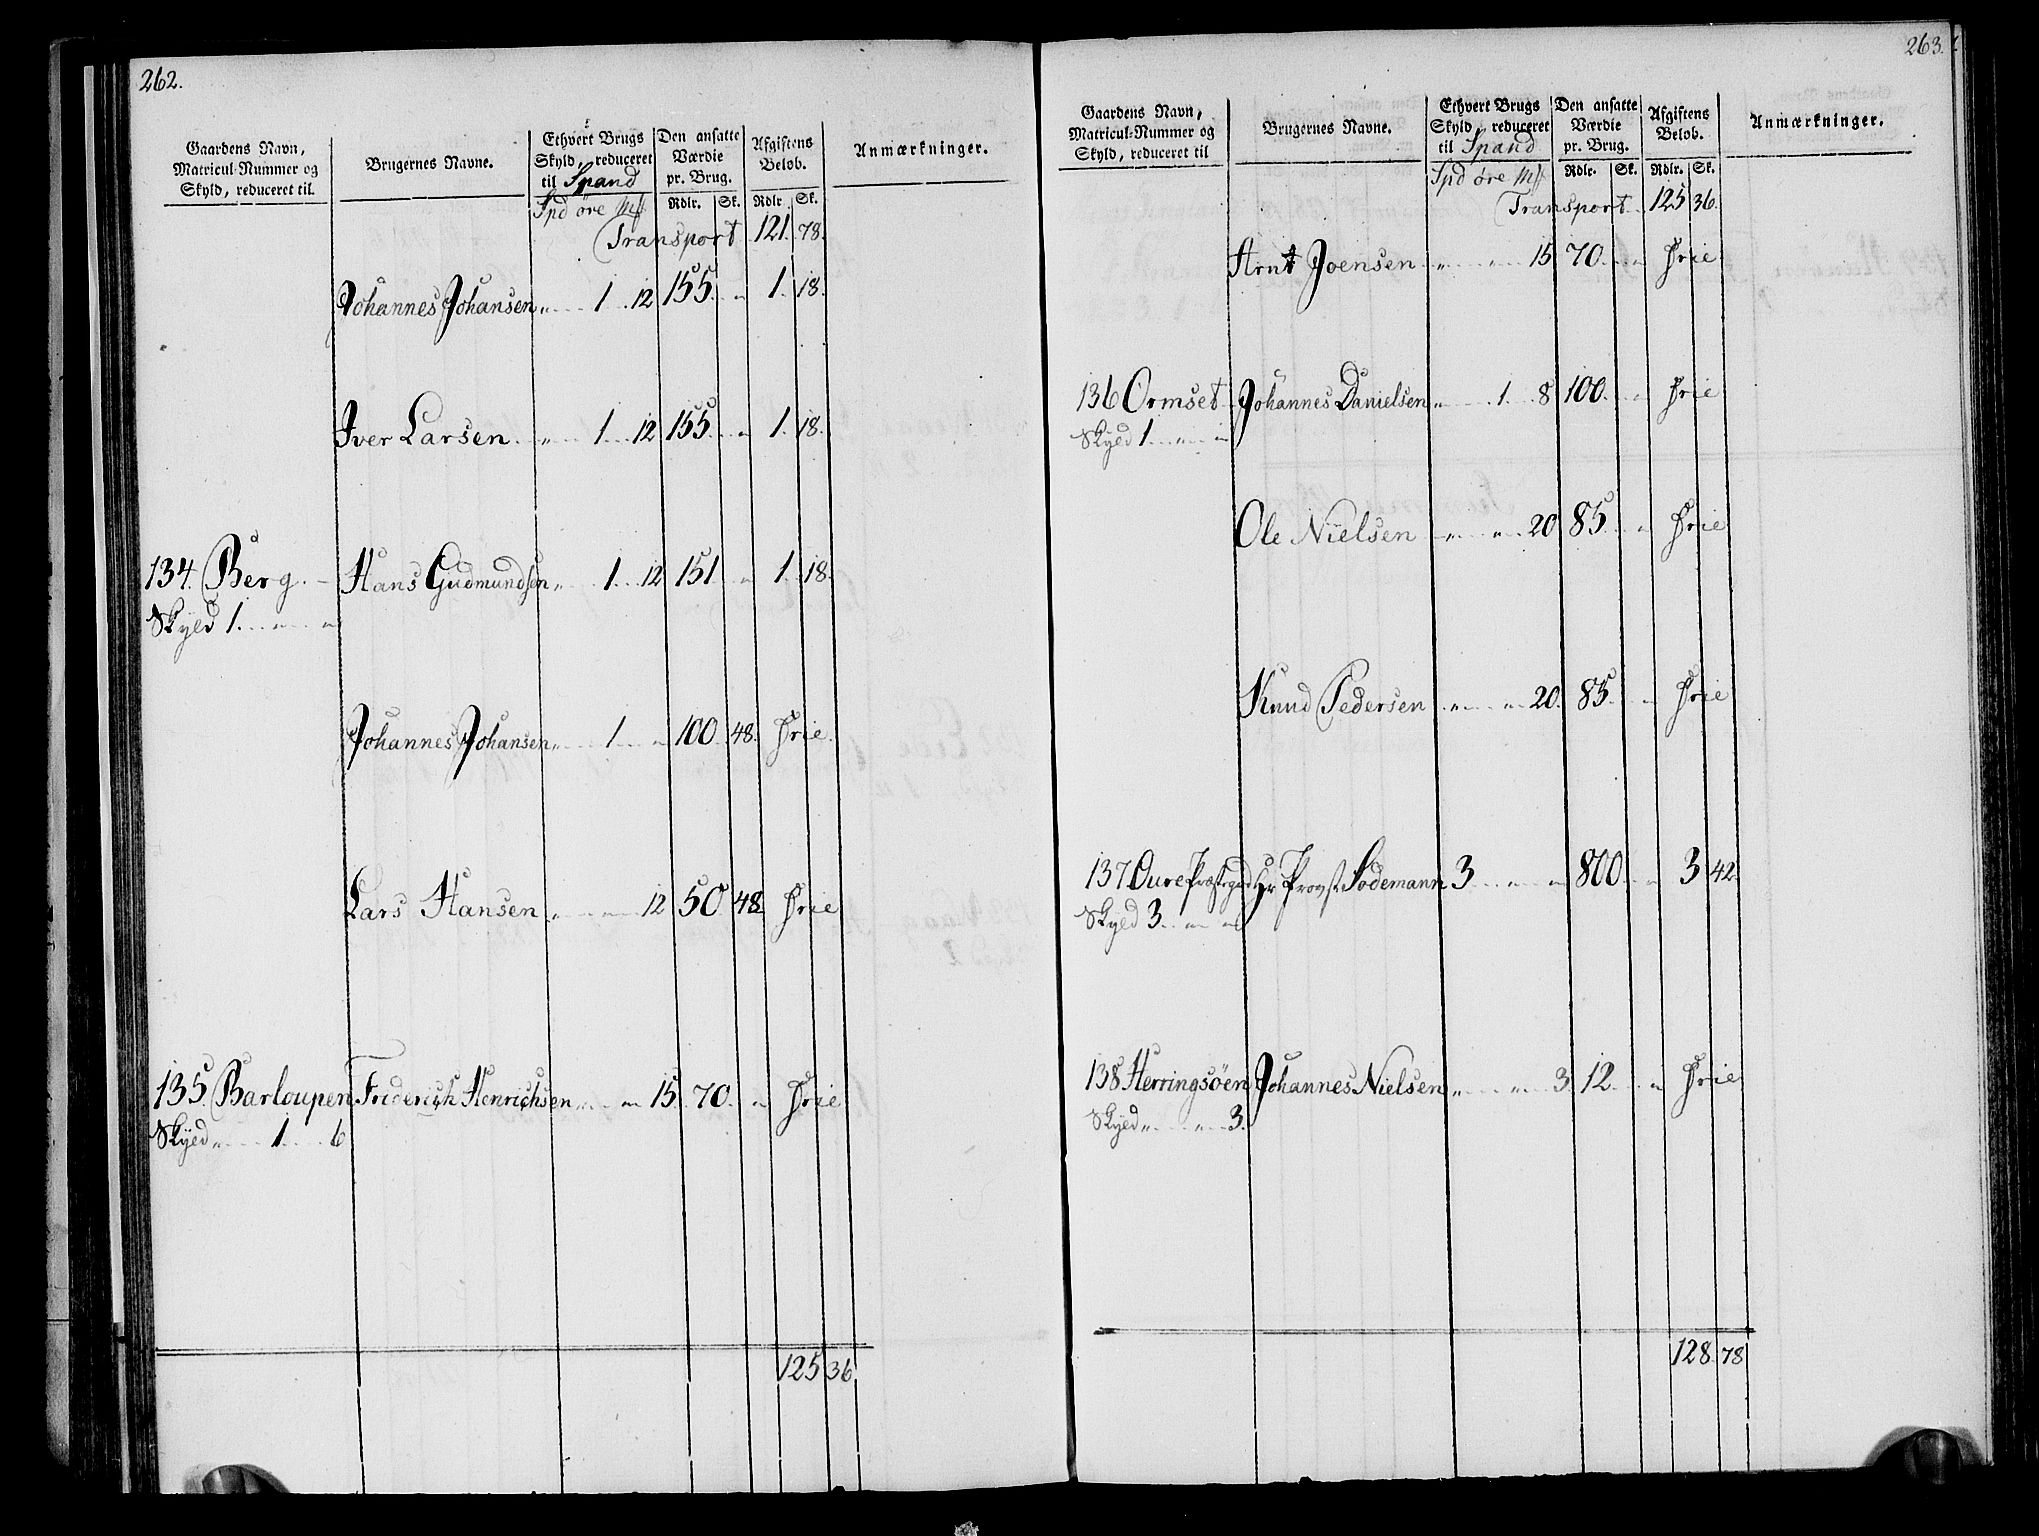 262.
Gaardens Navn, Matricul-Nummer og Skyld, reduceret til.
Brugernes Navne.
Ethvert Brugs Skyld, reduceret til Spand
Den ansatte Værdie pr. Brug.
Afgiftens Beløb.
Anmærkninger.
Spd øre Mk Rdlr. Sk. Rdlr. Sk.
Transport 121. 78.
Johannes Johansen „ 1 12 155 „ 1. 18.
Iver Larsen „ 1 12 155 „ 1. 18.
134. Berg. Hans Gudmundsen „ 1. 12 151 „ 1. 18.
Skyld 1. „ „
Johannes Johansen „ 1 „ 100 48. Frie.
Lars Hansen „ „ 12 50 48. Frie
135. Barloupen Friderich Henrichsen „ „ 15. 70. „ Frie
Skyld „ 1. 6
125 36.
263.
Gaardens Navn, Matricul-Nummer og Skyld, reduceret til
Brugernes Navne.
Ethvert Brugs Skyld, reduceret til Spand
Den ansatte Værdie pr. Brug.
Afgiftens Beløb.
Anmærkninger.
Spd øre Mk Rdlr. Sk. Rdlr. Sk.
Transport 125 36.
Arnt Joensen „ „ 15 70. „ Frie
136 Ormset Johannes Danielsen „ 1. 8 100. „ Frie
Skyld 1. „ „
Ole Nielsen „ „ 20 85. „ Frie
Knud Pedersen „ „ 20. 85. „ Frie
137. Oure Præstegrd Hr Provst Sødemann 3 „ „ 800 „ 3 42.
Skyld 3. „ „
138. Herringsøen Johannes Nielsen „ „ 3 12. „ Frie
Skyld „ „ 3.
128. 78